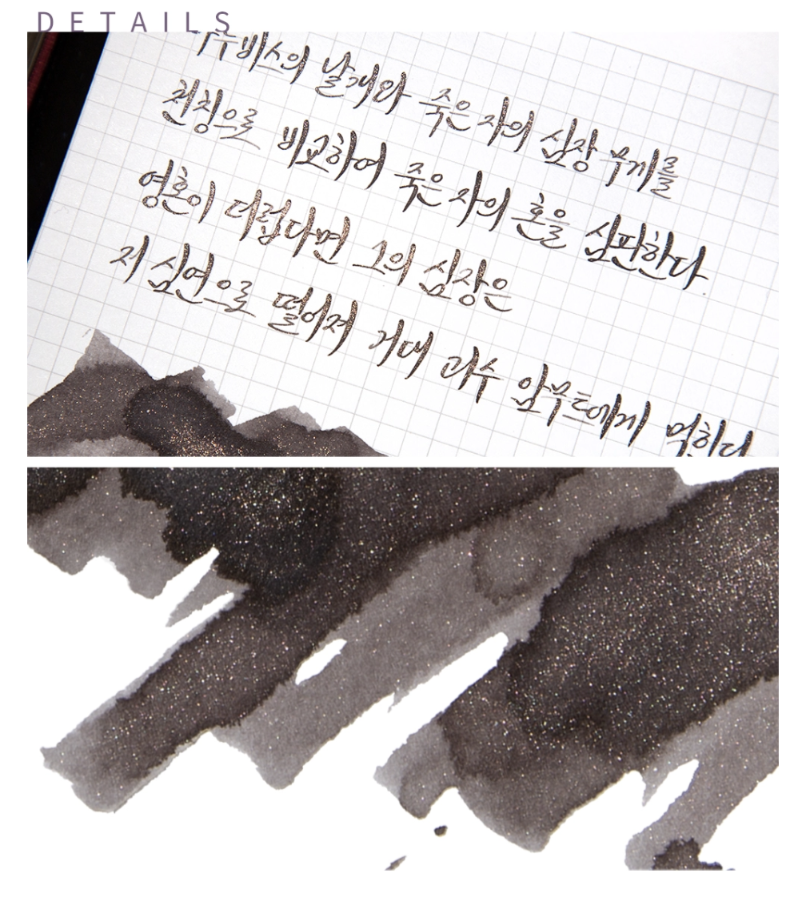 DETAILS
아누비스의 날개와 죽은 자의 심장 무게를
천칭으로 비교하여 죽은 자의 혼을 심판한다.
영혼이 더럽다면 그의 심장은
저 심연으로 떨어져 거대 괴수 암무트에게